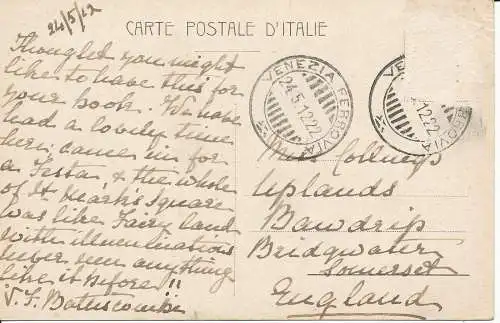 24/5/12
CARTE POSTALE D'ITALIE
Thought you might
like to have this for
your book. We have
had a lovely time
here; came in for
a Festa & the whole
of St Mark's Square
was like Fairy land
with illuminations
never seen anything
like it before!!
VENEZIA FERROVIA
24.5.12.22
VE
12.22
OVIA
Miss Collings
Uplands
Bawdrip
Bridgwater
Somerset
England